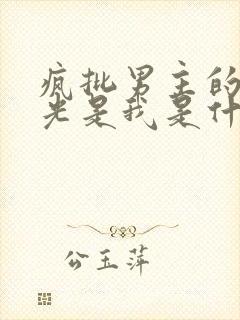 疯批男主的
光是我是什
公玉萍